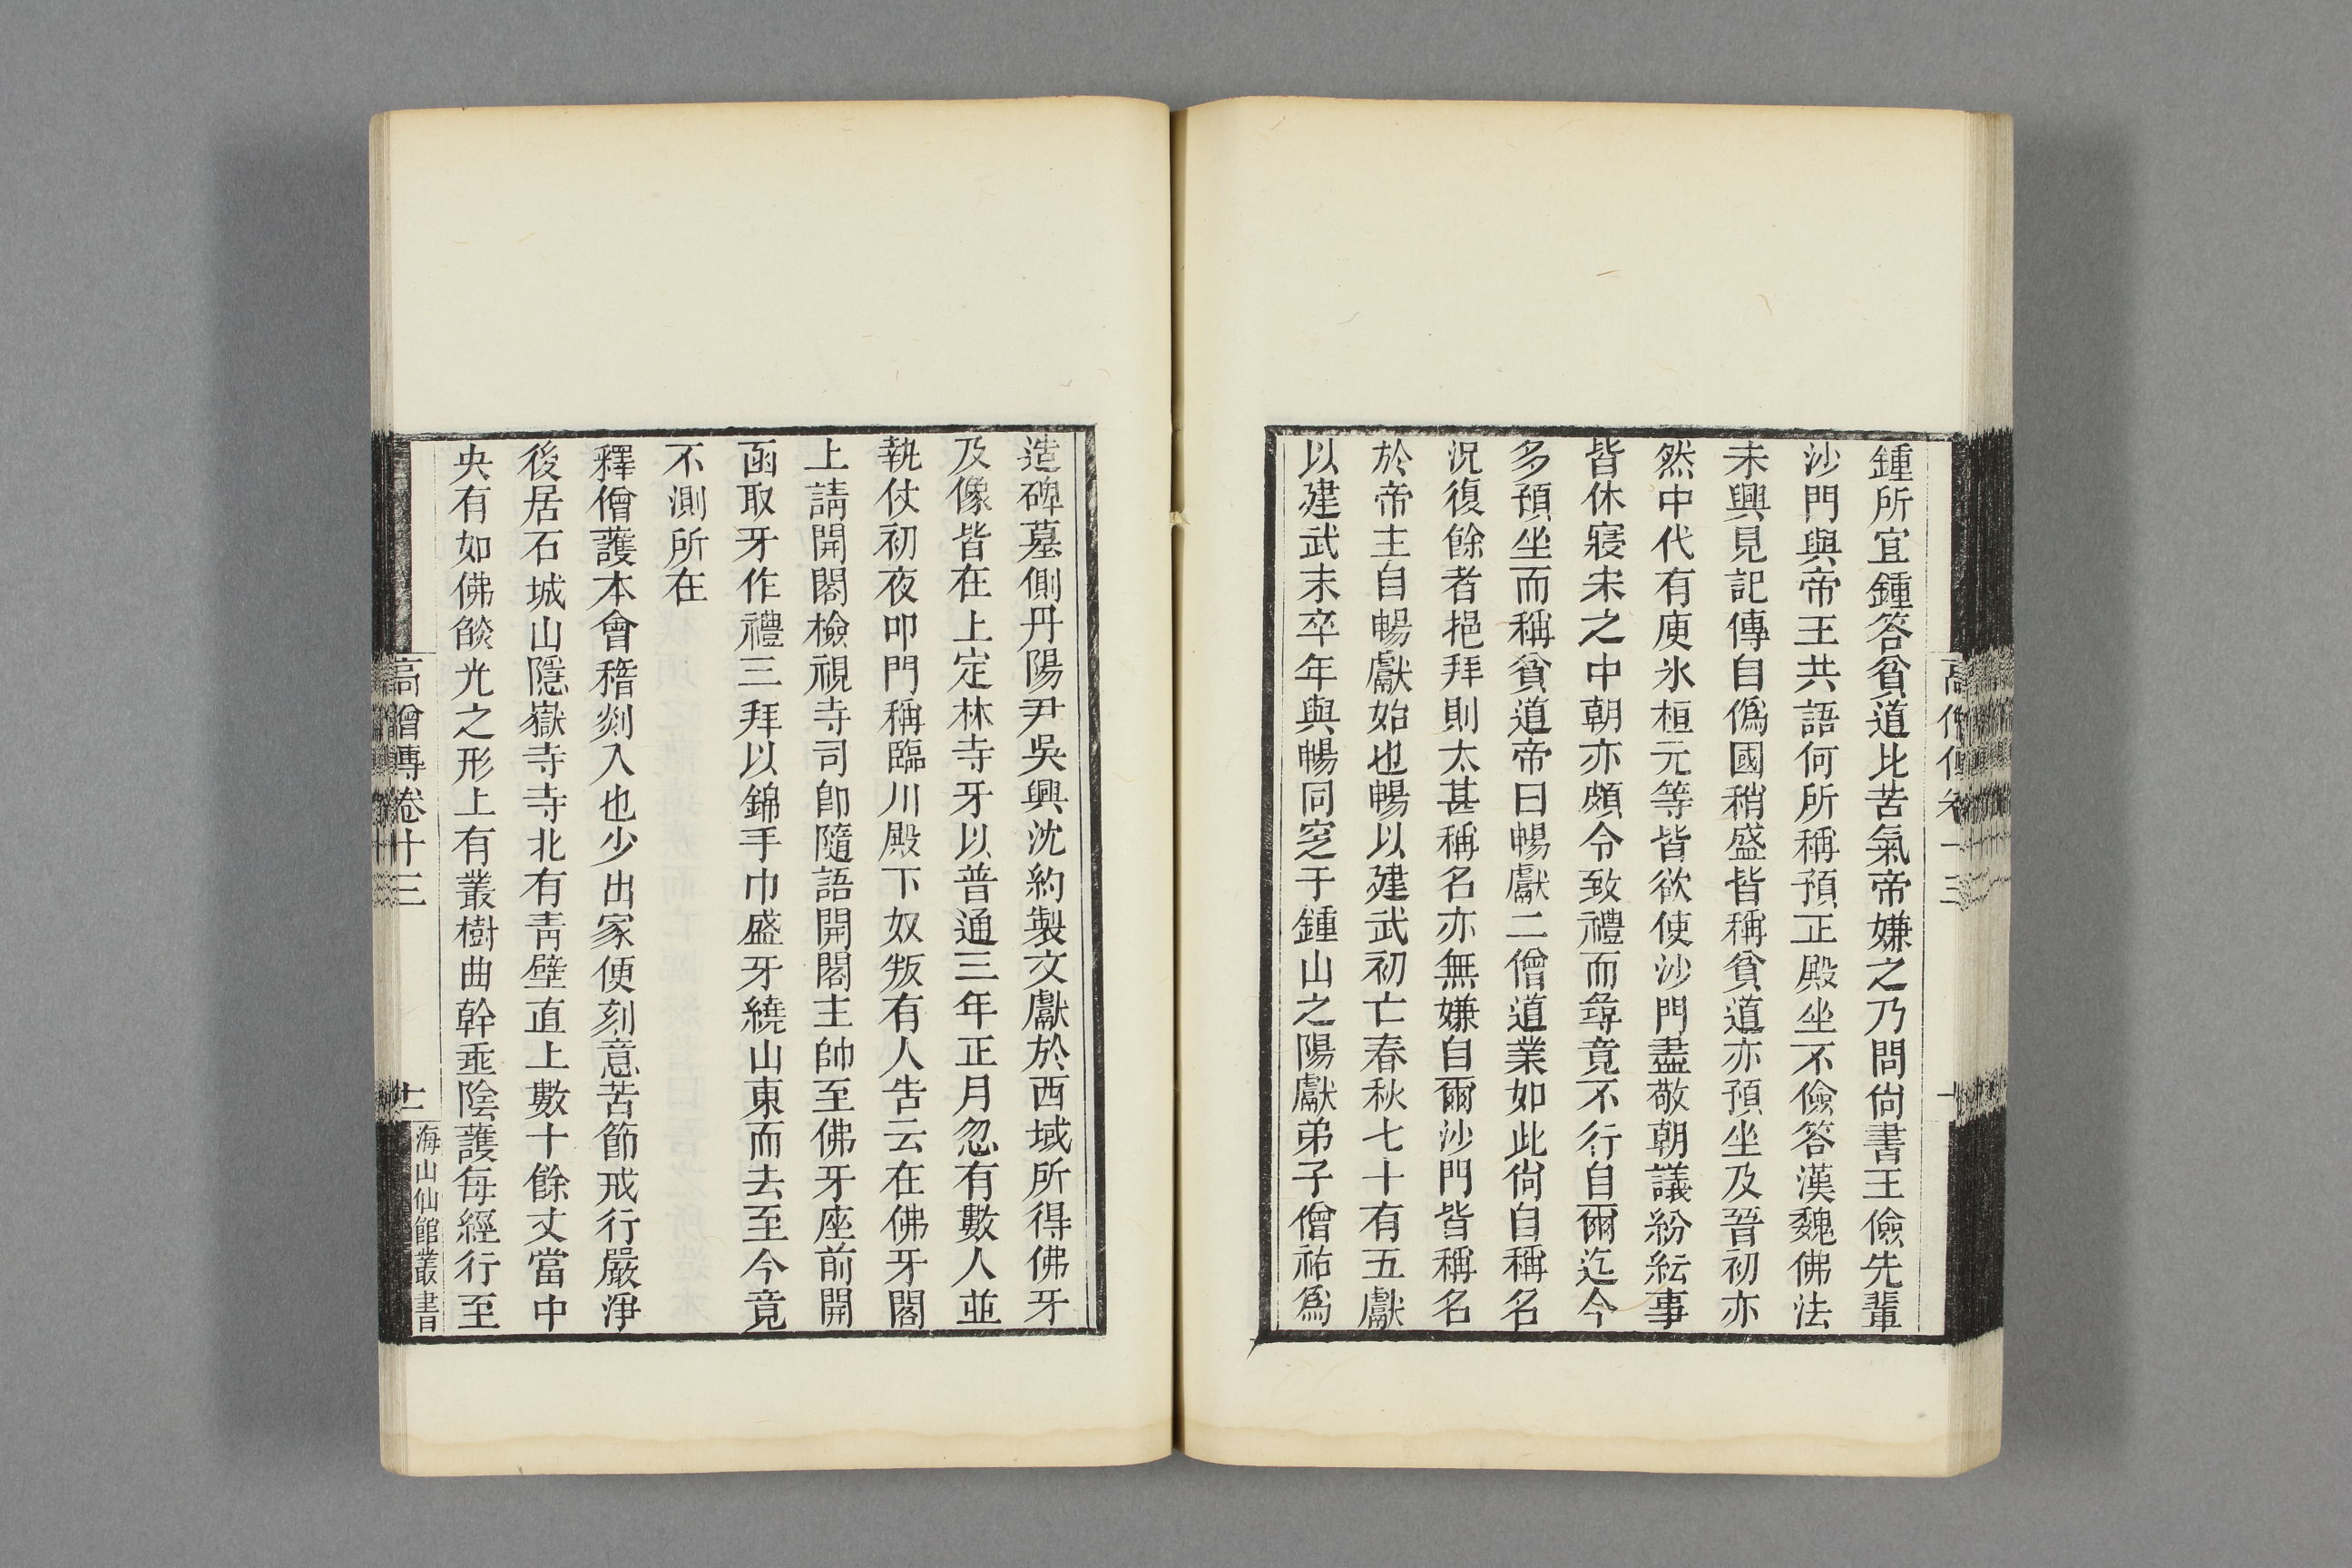 鍾所宜鍾答貧道比苦氣帝嫌之乃問尙書王儉先輩
沙門與帝王共語何所稱預正殿坐不儉答漢魏佛法
未興見記傳自僞國稍盛皆稱貧道亦預坐及晉初亦
然中代有庾氷桓元等皆欲使沙門盡敬朝議紛紜事
皆休寢宋之中朝亦頗令致禮而尋竟不行自爾迄今
多預坐而稱貧道帝曰暢獻二僧道業如此尙自稱名
況復餘者挹拜則太甚稱名亦無嫌自爾沙門皆稱名
於帝主自暢獻始也暢以建武初亡春秋七十有五獻
以建武末卒年與暢同窆于鍾山之陽獻弟子僧祐爲
造碑墓側丹陽尹吳興沈約製文獻於西域所得佛牙
及像皆在上定林寺牙以普通三年正月忽有數人並
執仗初夜叩門稱臨川殿下奴叛有人告云在佛牙閣
上請開閣檢視寺司卽隨語開閣主帥至佛牙座前開
函取牙作禮三拜以錦手巾盛牙繞山東而去至今竟
不測所在
釋僧護本會稽剡入也少出家便刻意苦節戒行嚴淨
後居石城山隱嶽寺寺北有靑壁直上數十餘丈當中
央有如佛燄光之形上有叢樹曲幹埀陰護每經行至
高僧傳卷十三
十一
海山仙館叢書